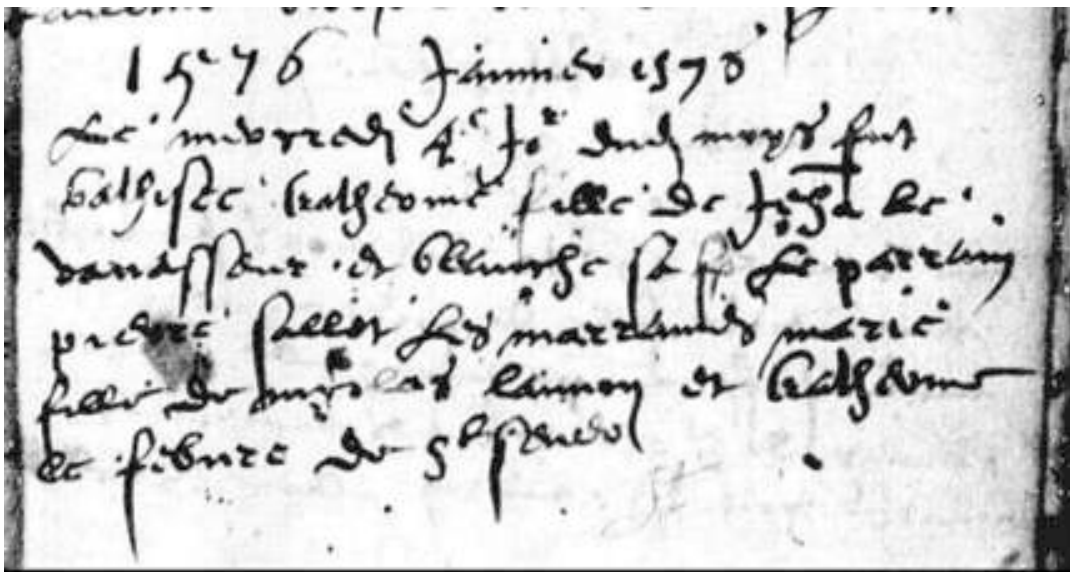 1576 Janvier 1576
Le mercredi 4e Jor dud moys fut
bathisee katherine fille de Jeha le
vavasseur et blanche sa fe Le parrain
pierre sallet Les marraines marie
fille de nicolas et katherine
le febvre de St